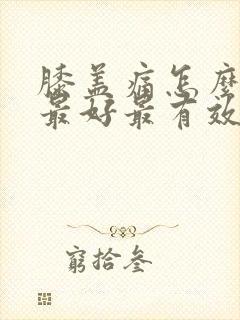 膝盖痛怎麽
最好最有效
窮拾叁